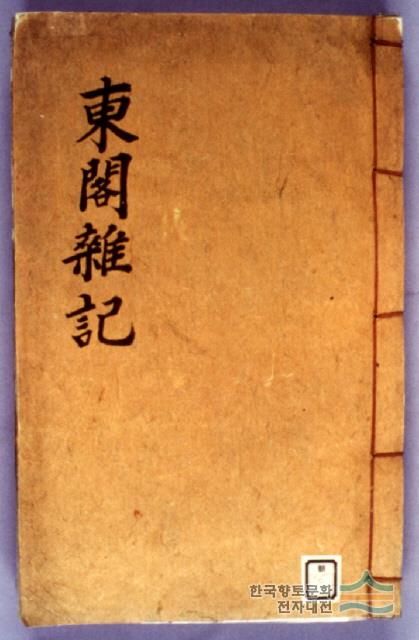 東閣雜記
한국향토문화
전자대전